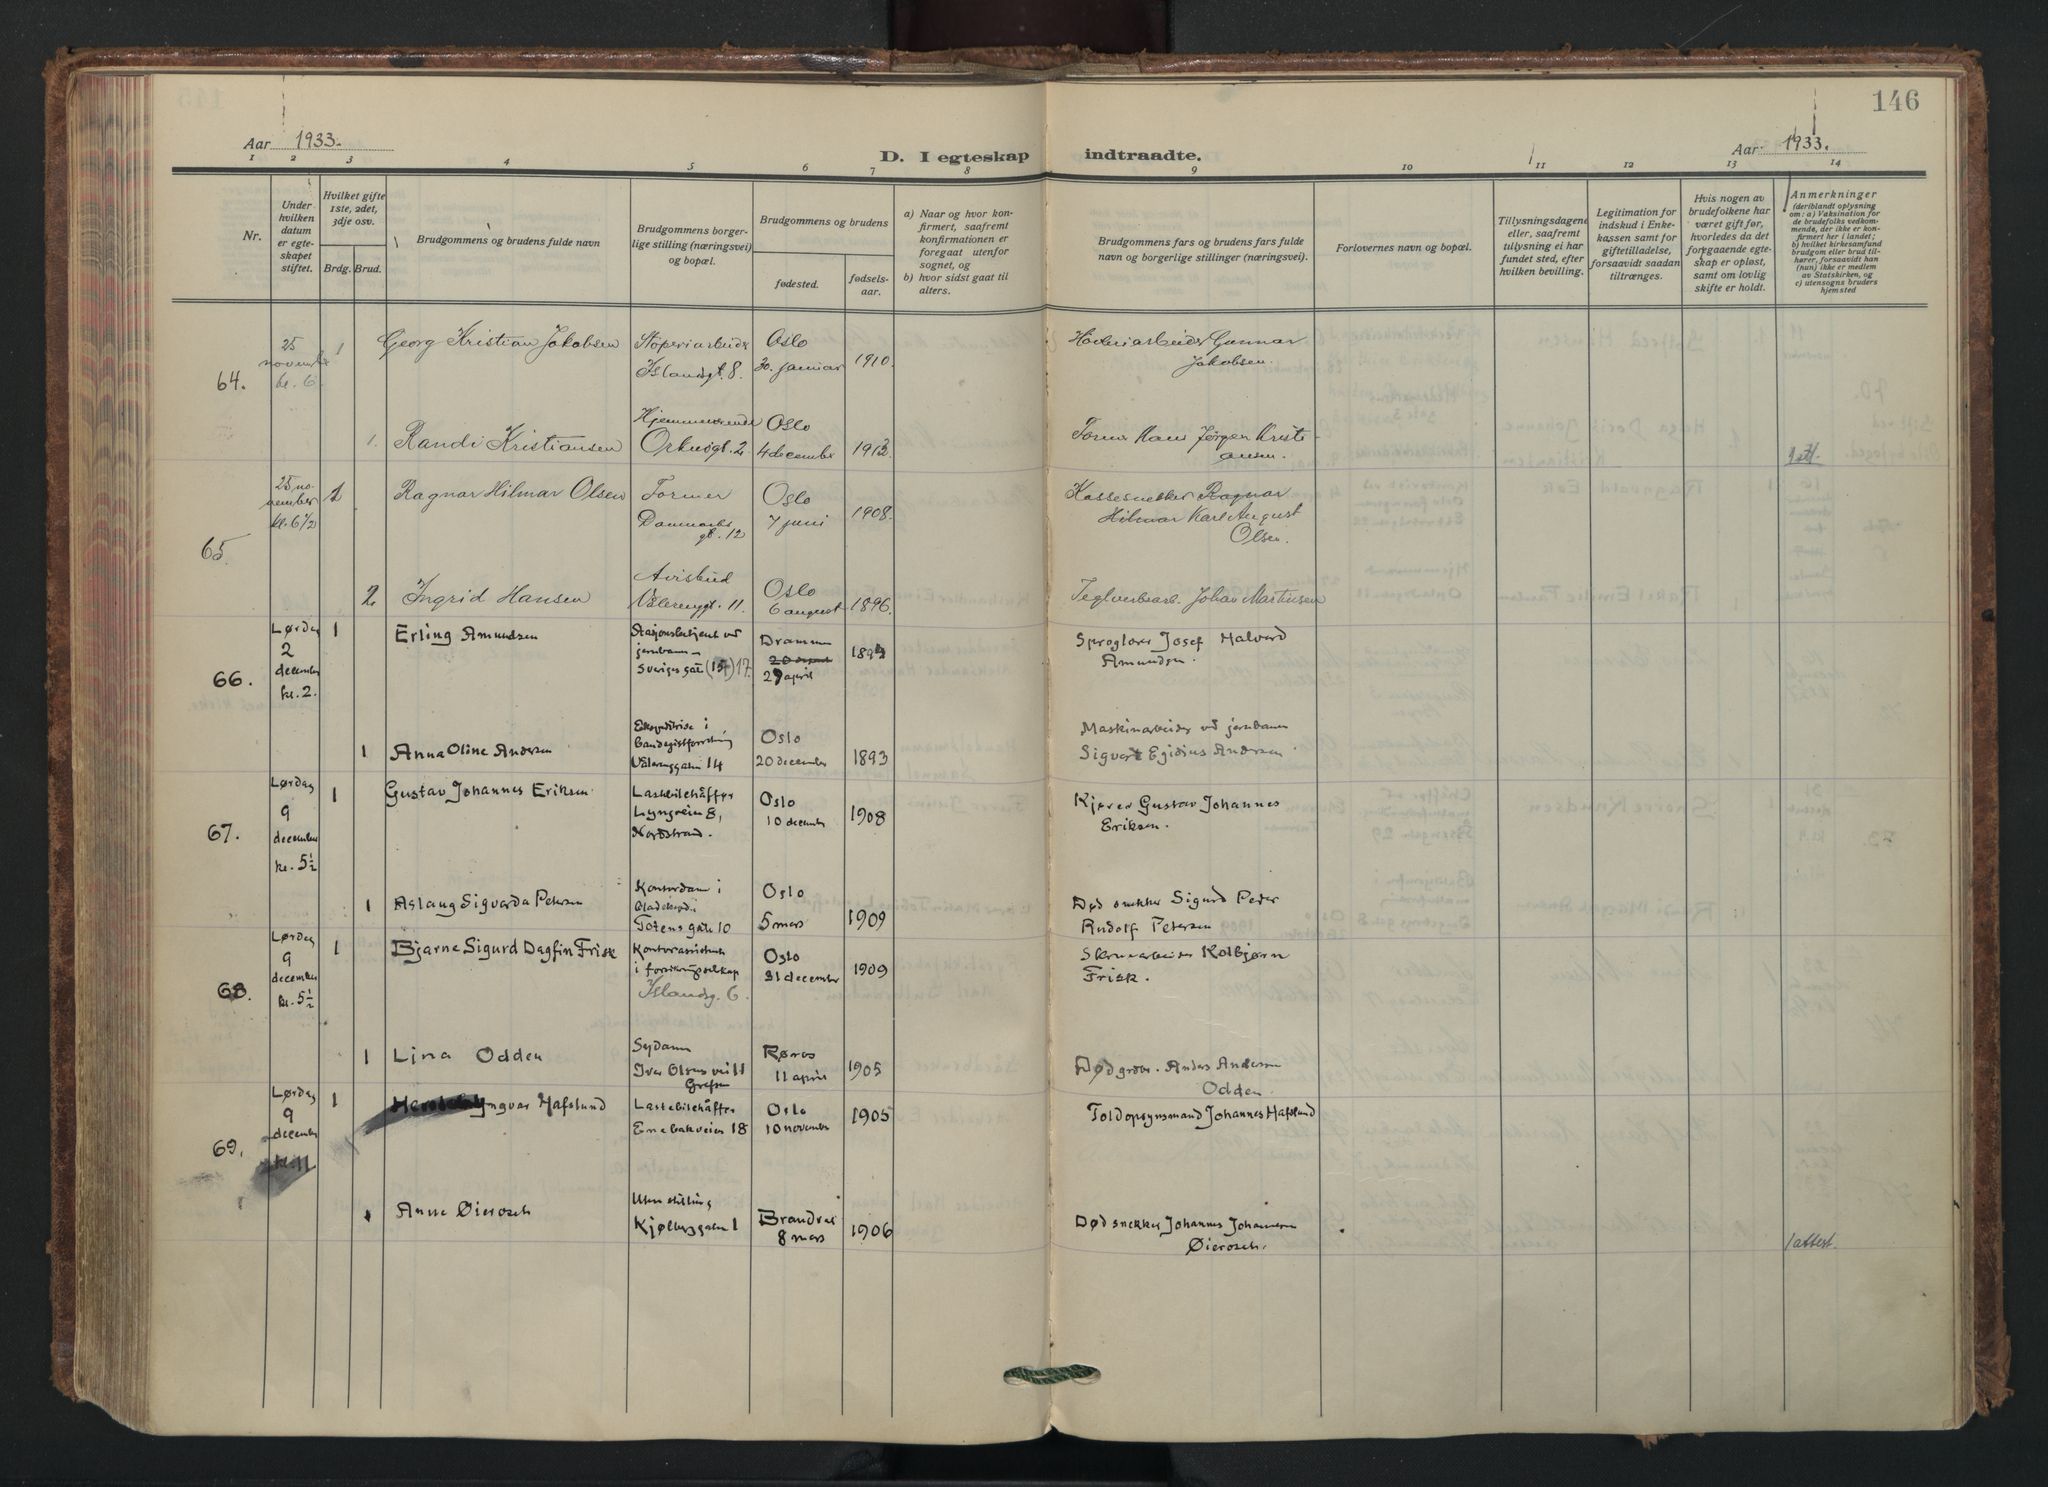 146
Aar 1933.
D. I egteskap indtraadte.
Aar 1933.
1 2 3 4 5 6 7 8 9 10 11 12 13 14
Nr.
Under hvilken datum er egteskapet stiftet.
Hvilket gifte 1ste, 2det, 3dje osv.
Brdg. Brud.
Brudgommens og brudens fulde navn
Brudgommens borgerlige stilling (næringsvei) og bopæl.
Brudgommens og brudens
fødested.
fødselsaar.
a) Naar og hvor konfirmert, saafremt konfirmationen er foregaat utenfor sognet, og
b) hvor sidst gaat til alters.
Brudgommens fars og brudens fars fulde navn og borgerlige stillinger (næringsvei).
Forlovernes navn og bopæl.
Tillysningsdagene eller, saafremt tillysning ei har fundet sted, efter hvilken bevilling.
Legitimation for indskud i Enkekassen samt for giftetilladelse, forsaavidt saadan tiltrænges.
Hvis nogen av brudefolkene har været gift før, hvorledes da det foregaaende egteskap er opløst, samt om lovlig skifte er holdt.
Anmerkninger
(deriblandt oplysning om: a) Vaksination for de brudefolks vedkommende, der ikke er konfirmert her i landet; b) hvilket kirkesamfund brudgom eller brud tilhører, forsaavidt han (hun) ikke er medlem av Statskirken, og c) utensogns bruders hjemsted
64.
25 november kl. 6
1
Georg Kristian Jakobsen
Støperiarbeider
Islandsgt. 8.
Oslo
30. januar
1910.
Gunnar
Jakobsen.
1.
Randi Kristiansen
Hjemmeværende
Orknøgt. 2.
Oslo
4 december
Former Hans Jørgen Kristiansen.
1 att.
65.
25 november kl. 6 1/2
2
Ragnar Hilmar Olsen
Former
Danmarks gt. 12
Oslo
7 juni
1908.
Kassesnekker Ragnar
Hilmar Karl August
Olsen.
2
Ingrid Hansen
Avisbud
Vålerenggt. 11.
Oslo
6 august
1896.
Teglverksarb. Johan Martinsen
66.
Lørdag
2
december
kl. 2.
1
Erling Amundsen
Stasjonsbetjent ved
jernbanen
Sveriges gate (15) 17.
Drammen
29 april
Sproglærer Josef Halvard
Amundsen.
1
Anna Oline Andersen
Ekspeditrise i
bandagistforretning
Vålerenggaten 14
Oslo
20 december
1893
Maskinarbeider ved jernbanen
Sigvart Egidius Andersen
67.
Lørdag
9
december
kl. 5 1/2
1
Gustav Johannes Eriksen
Lastebilchåffør
Lyngveien 8,
Nordstrand.
Oslo
10 december
1908
Kjører Gustav Johannes
Eriksen.
1
Aslaug Sigvarda Petersen
Kontordame i
Totens gate 10
Oslo
5 mars
1909
Død snekker Sigurd Peder
Rudolf Petersen
68.
Lørdag
9
december
kl. 5 1/2
1
Bjarne Sigurd Dagfin Frisk
Kontorassistent
i forsikringsselskap
Islandsg. 6
Oslo
31 december
1909
Skruearbeider Kolbjørn
Frisk.
1
Lina Odden
Sydame
Iver Olsens vei 11
Grefsen
Røros
11 april
1905
Død grber. Anders Andersen
Odden.
69.
Lørdag
9
december
kl. 11
1
Yngvar Hafslund
Lastebilchåffør
Enebakveien 18
Oslo
10 november
1905
Toldopsynsmand Johannes Hafslund
1
Anne Øierosch
Uten stilling
Kjølberggaten 1
Brandval
8 mars
1906
Død snekker Johannes Johannesen
Øierosch.
1 attest.